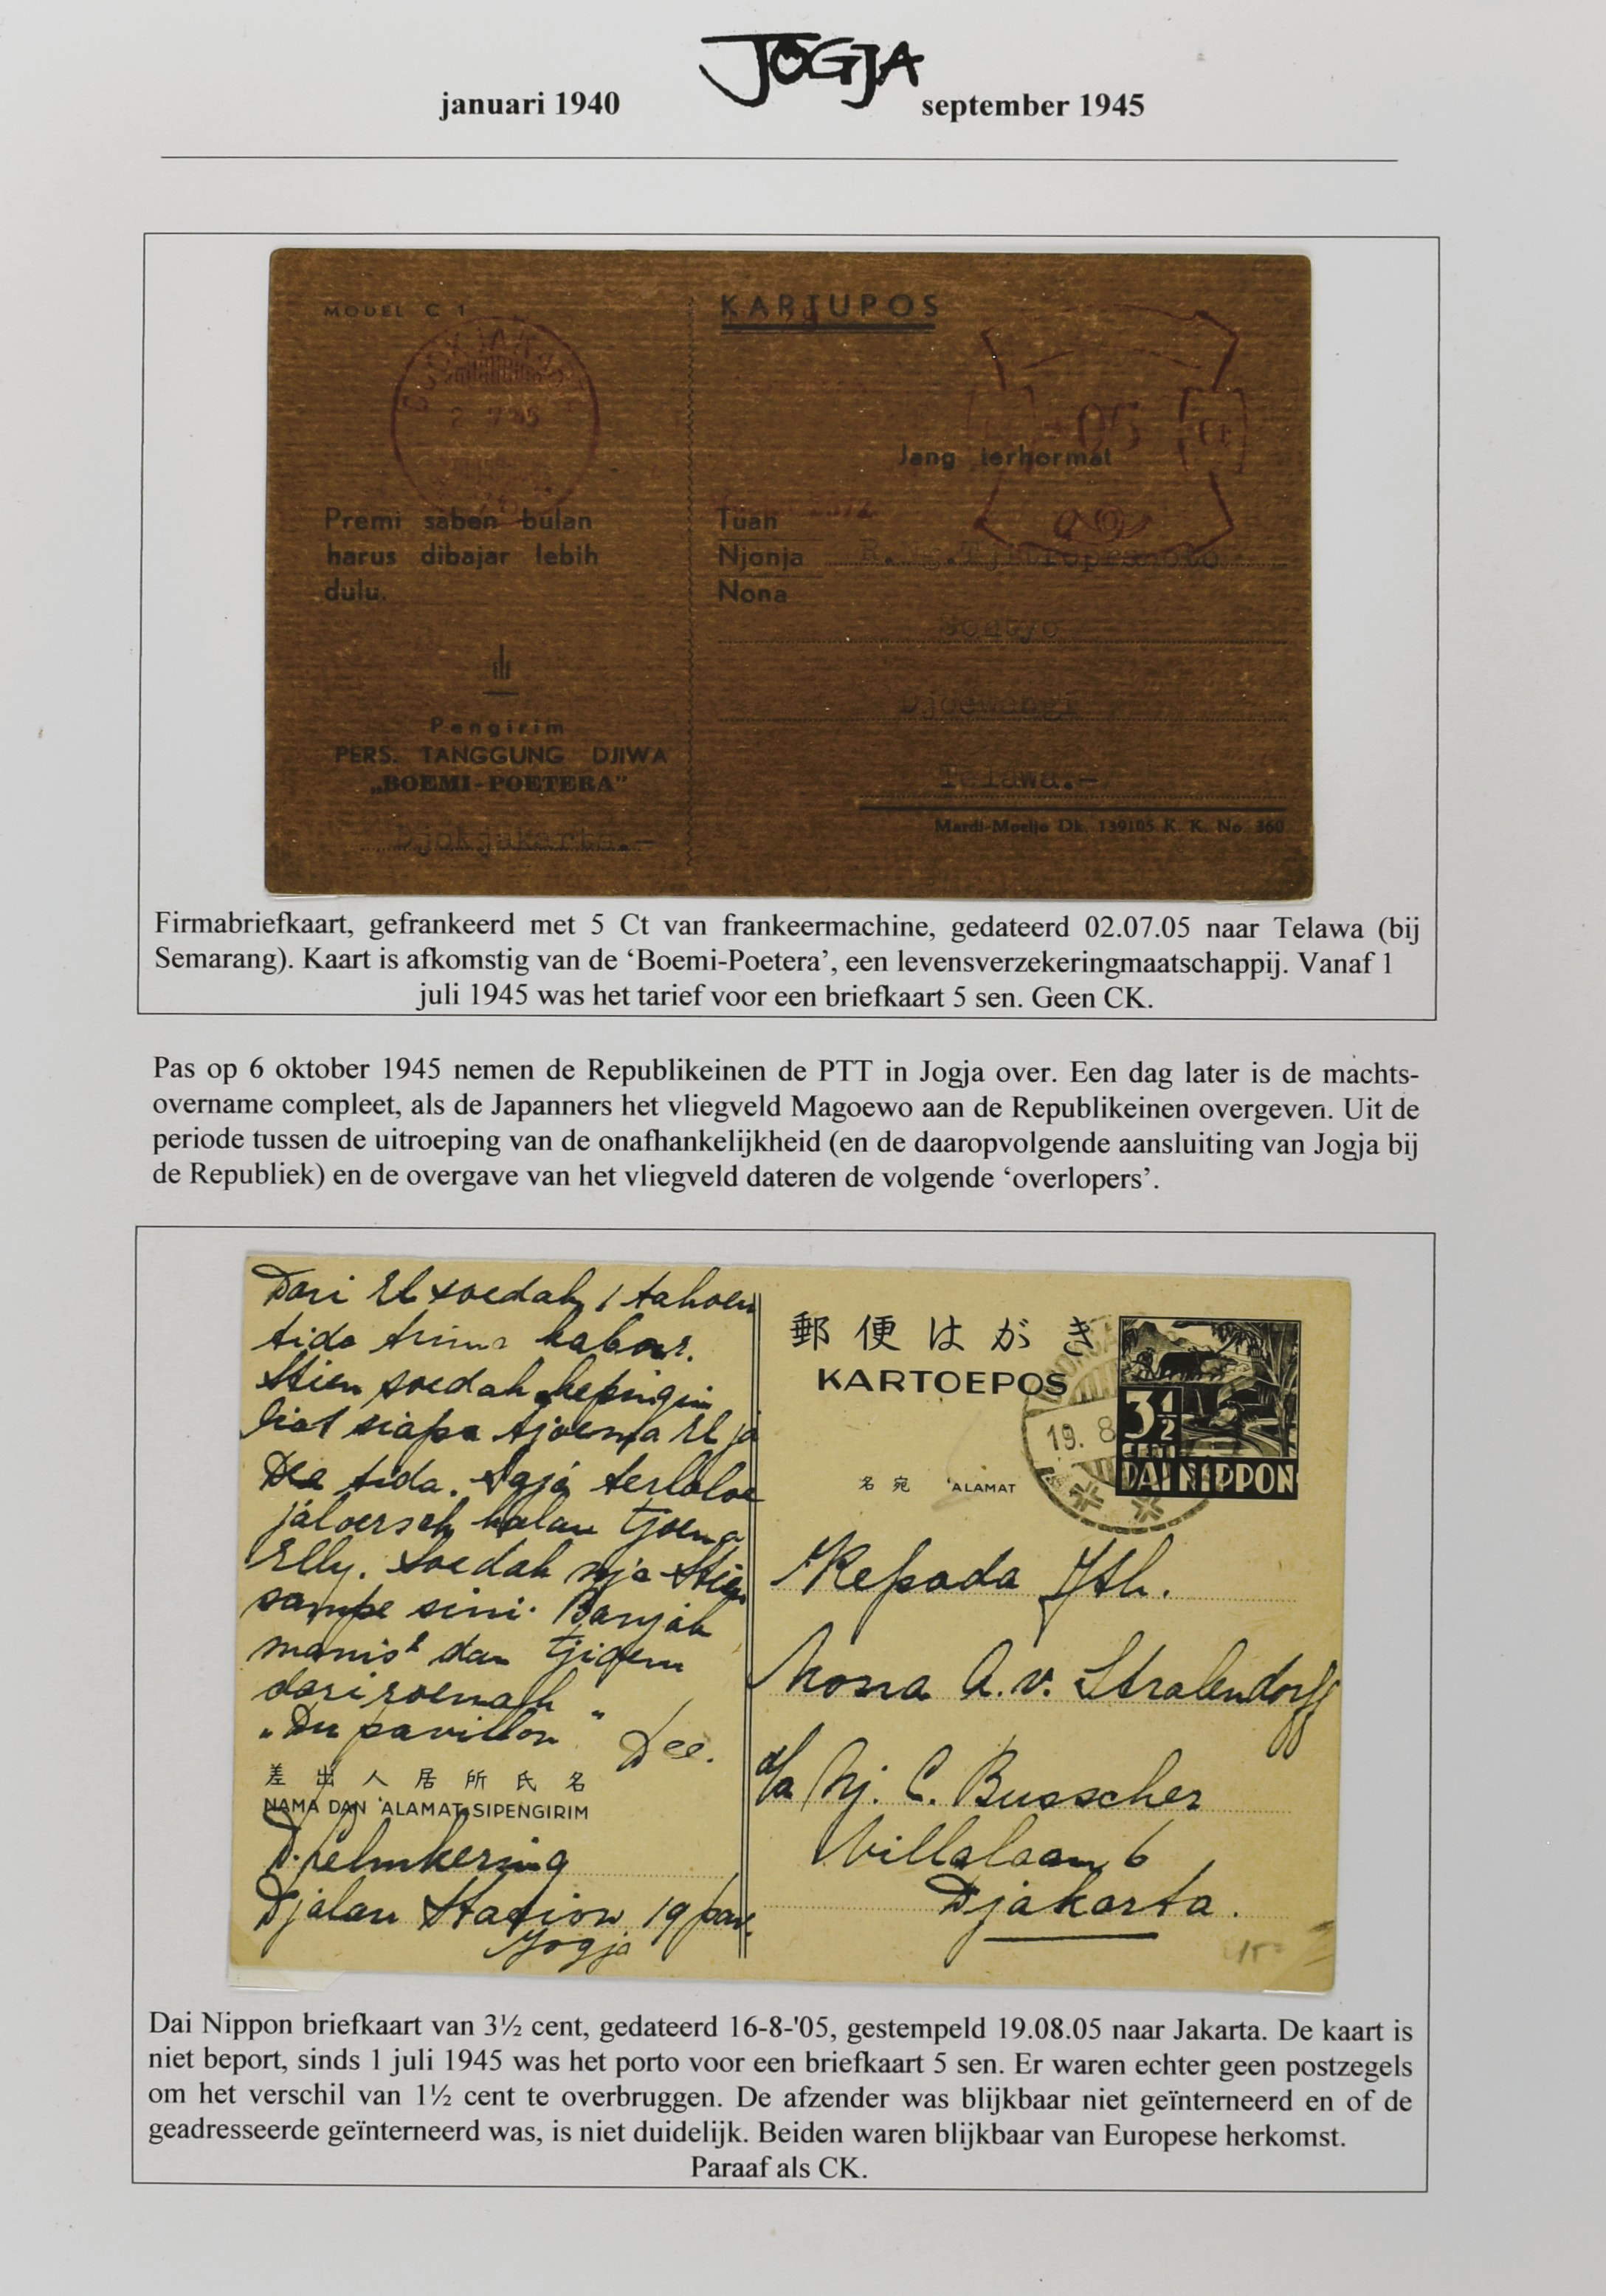 JOGJA
januari 1940
september 1945
MODEL C 1
KARTUPOS
2 7 05
05
Ct
Jang terhormat
Premi saben bulan
harus dibajar lebih
dulu.
Tuan
Njonja
Nona
Djoewangi
Telawa.-
Pengirim
PERS. TANGGUNG DJIWA
„BOEMI-POETERA”
Djokjakarta.-
Mardi-Moeljo Dk. 139105 K. K. No. 360
Firmabriefkaart, gefrankeerd met 5 Ct van frankeermachine, gedateerd 02.07.05 naar Telawa (bij
Semarang). Kaart is afkomstig van de ‘Boemi-Poetera’, een levensverzekeringmaatschappij. Vanaf 1
juli 1945 was het tarief voor een briefkaart 5 sen. Geen CK.
Pas op 6 oktober 1945 nemen de Republikeinen de PTT in Jogja over. Een dag later is de machts-
overname compleet, als de Japanners het vliegveld Magoewo aan de Republikeinen overgeven. Uit de
periode tussen de uitroeping van de onafhankelijkheid (en de daaropvolgende aansluiting van Jogja bij
de Republiek) en de overgave van het vliegveld dateren de volgende ‘overlopers’.
Dari El soedah 1 tahoen
tida trima kabar.
Stien soedah kepingin
liat siapa tjoema El ja
Dee tida. Saja terlaloe
jaloersch kalau tjoema
Elly. Soedah nja Stien
sampe sini. Banjak
manis² dan tjioem
dari roemah
„Du pavillon”
Dee.
差出人居所氏名
NAMA DAN 'ALAMAT SIPENGIRIM
Djalan Station 19 pav.
Jogja
郵便はがき
KARTOEPOS
19. 8
3½
CENT
DAI NIPPON
名宛 'ALAMAT
Kepada Jth.
Nona A. v. Stralendorff
d/a Nj. C. Busscher
Villalaan 6
Djakarta.
Dai Nippon briefkaart van 3½ cent, gedateerd 16-8-'05, gestempeld 19.08.05 naar Jakarta. De kaart is
niet beport, sinds 1 juli 1945 was het porto voor een briefkaart 5 sen. Er waren echter geen postzegels
om het verschil van 1½ cent te overbruggen. De afzender was blijkbaar niet geïnterneerd en of de
geadresseerde geïnterneerd was, is niet duidelijk. Beiden waren blijkbaar van Europese herkomst.
Paraaf als CK.